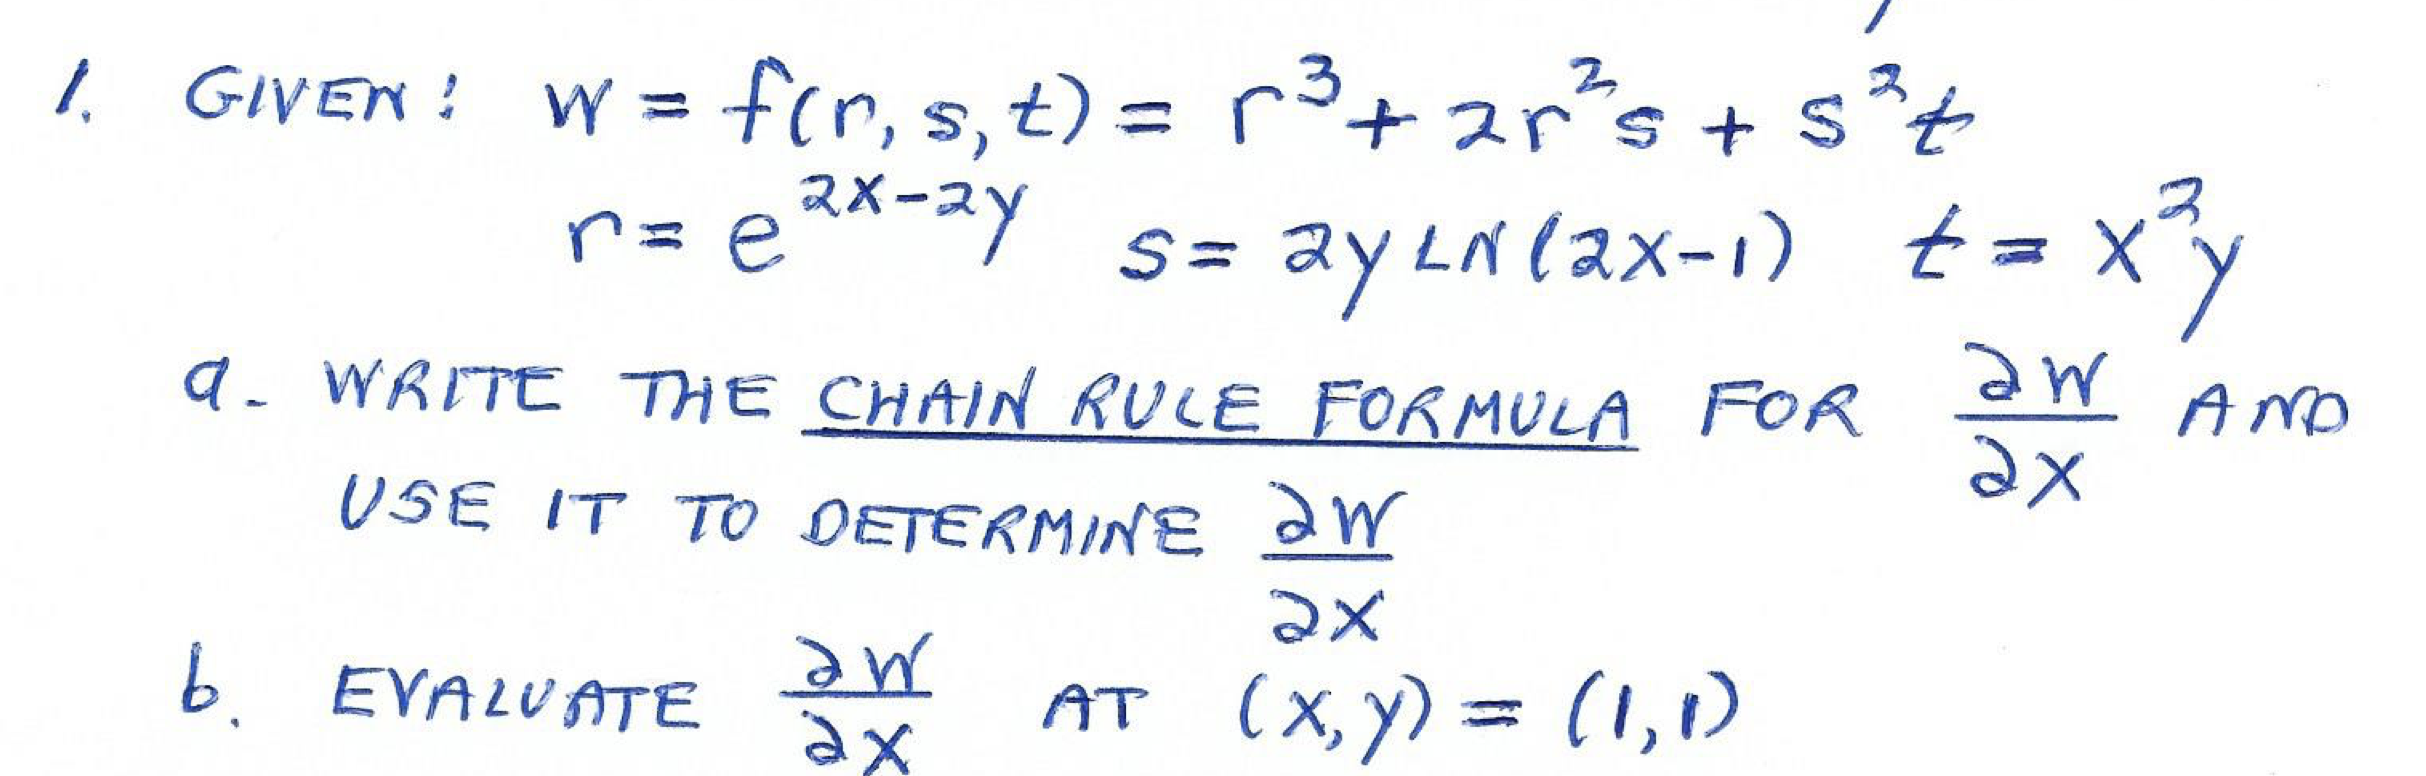 1. GIVEN: W = f(r, s, t) = r³ + 2r²s + s²t
r = e^{2x-2y} s = 2y LN(2x-1) t = x²y
a. WRITE THE CHAIN RULE FORMULA FOR ∂W/∂x AND
USE IT TO DETERMINE ∂W/∂x
b. EVALUATE ∂W/∂x AT (x,y) = (1,1)